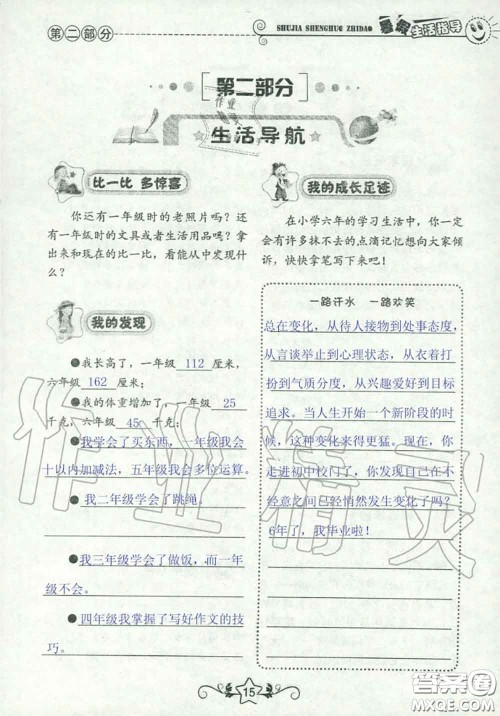 第二部分
SHUJIA SHENGHUO ZHIDAO
生活指导
第二部分
作业
生活导航
比一比 多惊喜
你还有一年级时的老照片吗？还
有一年级时的文具或者生活用品吗？拿
出来和现在的比一比，看能从中发现什
么？
我的发现
●我长高了，一年级 112 厘米，
六年级 162 厘米；
●我的体重增加了，一年级 25
千克，六年级 45 千克；
●我学会了买东西，一年级我会
十以内加减法，五年级我会多位运算。
●我二年级学会了跳绳。
●我三年级学会了做饭，而一年
级不会。
●四年级我掌握了写好作文的技
巧。
我的成长足迹
在小学六年的学习生活中，你一定
会有许多抹不去的点滴记忆想向大家倾
诉，快快拿笔写下来吧！
一路汗水 一路欢笑
总在变化，从待人接物到处事态度，
从言谈举止到心理状态，从衣着打
扮到气质分度，从兴趣爱好到目标
追求。当人生开始一个新阶段的时
候，这种变化来得更猛。现在，你
走进初中校门了，你是否发现在不
经意之间已经悄然发生变化了吗？
6年了，我毕业啦！
作业精灵
15
答案圈
MXQE.COM